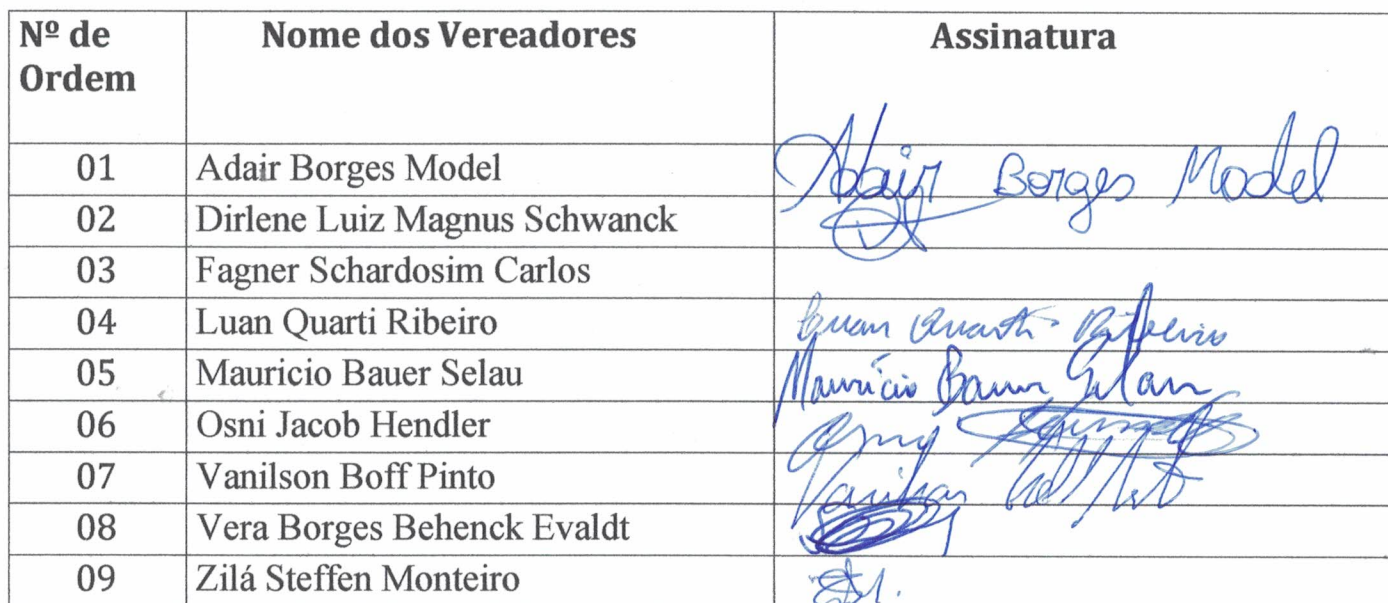 Nº de Ordem Nome dos Vereadores Assinatura
01 Adair Borges Model Adair Borges Model
02 Dirlene Luiz Magnus Schwanck
03 Fagner Schardosim Carlos
04 Luan Quarti Ribeiro Luan Quarti Ribeiro
05 Mauricio Bauer Selau Maurício Bauer Selau
06 Osni Jacob Hendler Osni
07 Vanilson Boff Pinto Vanilson Boff Pinto
08 Vera Borges Behenck Evaldt
09 Zilá Steffen Monteiro